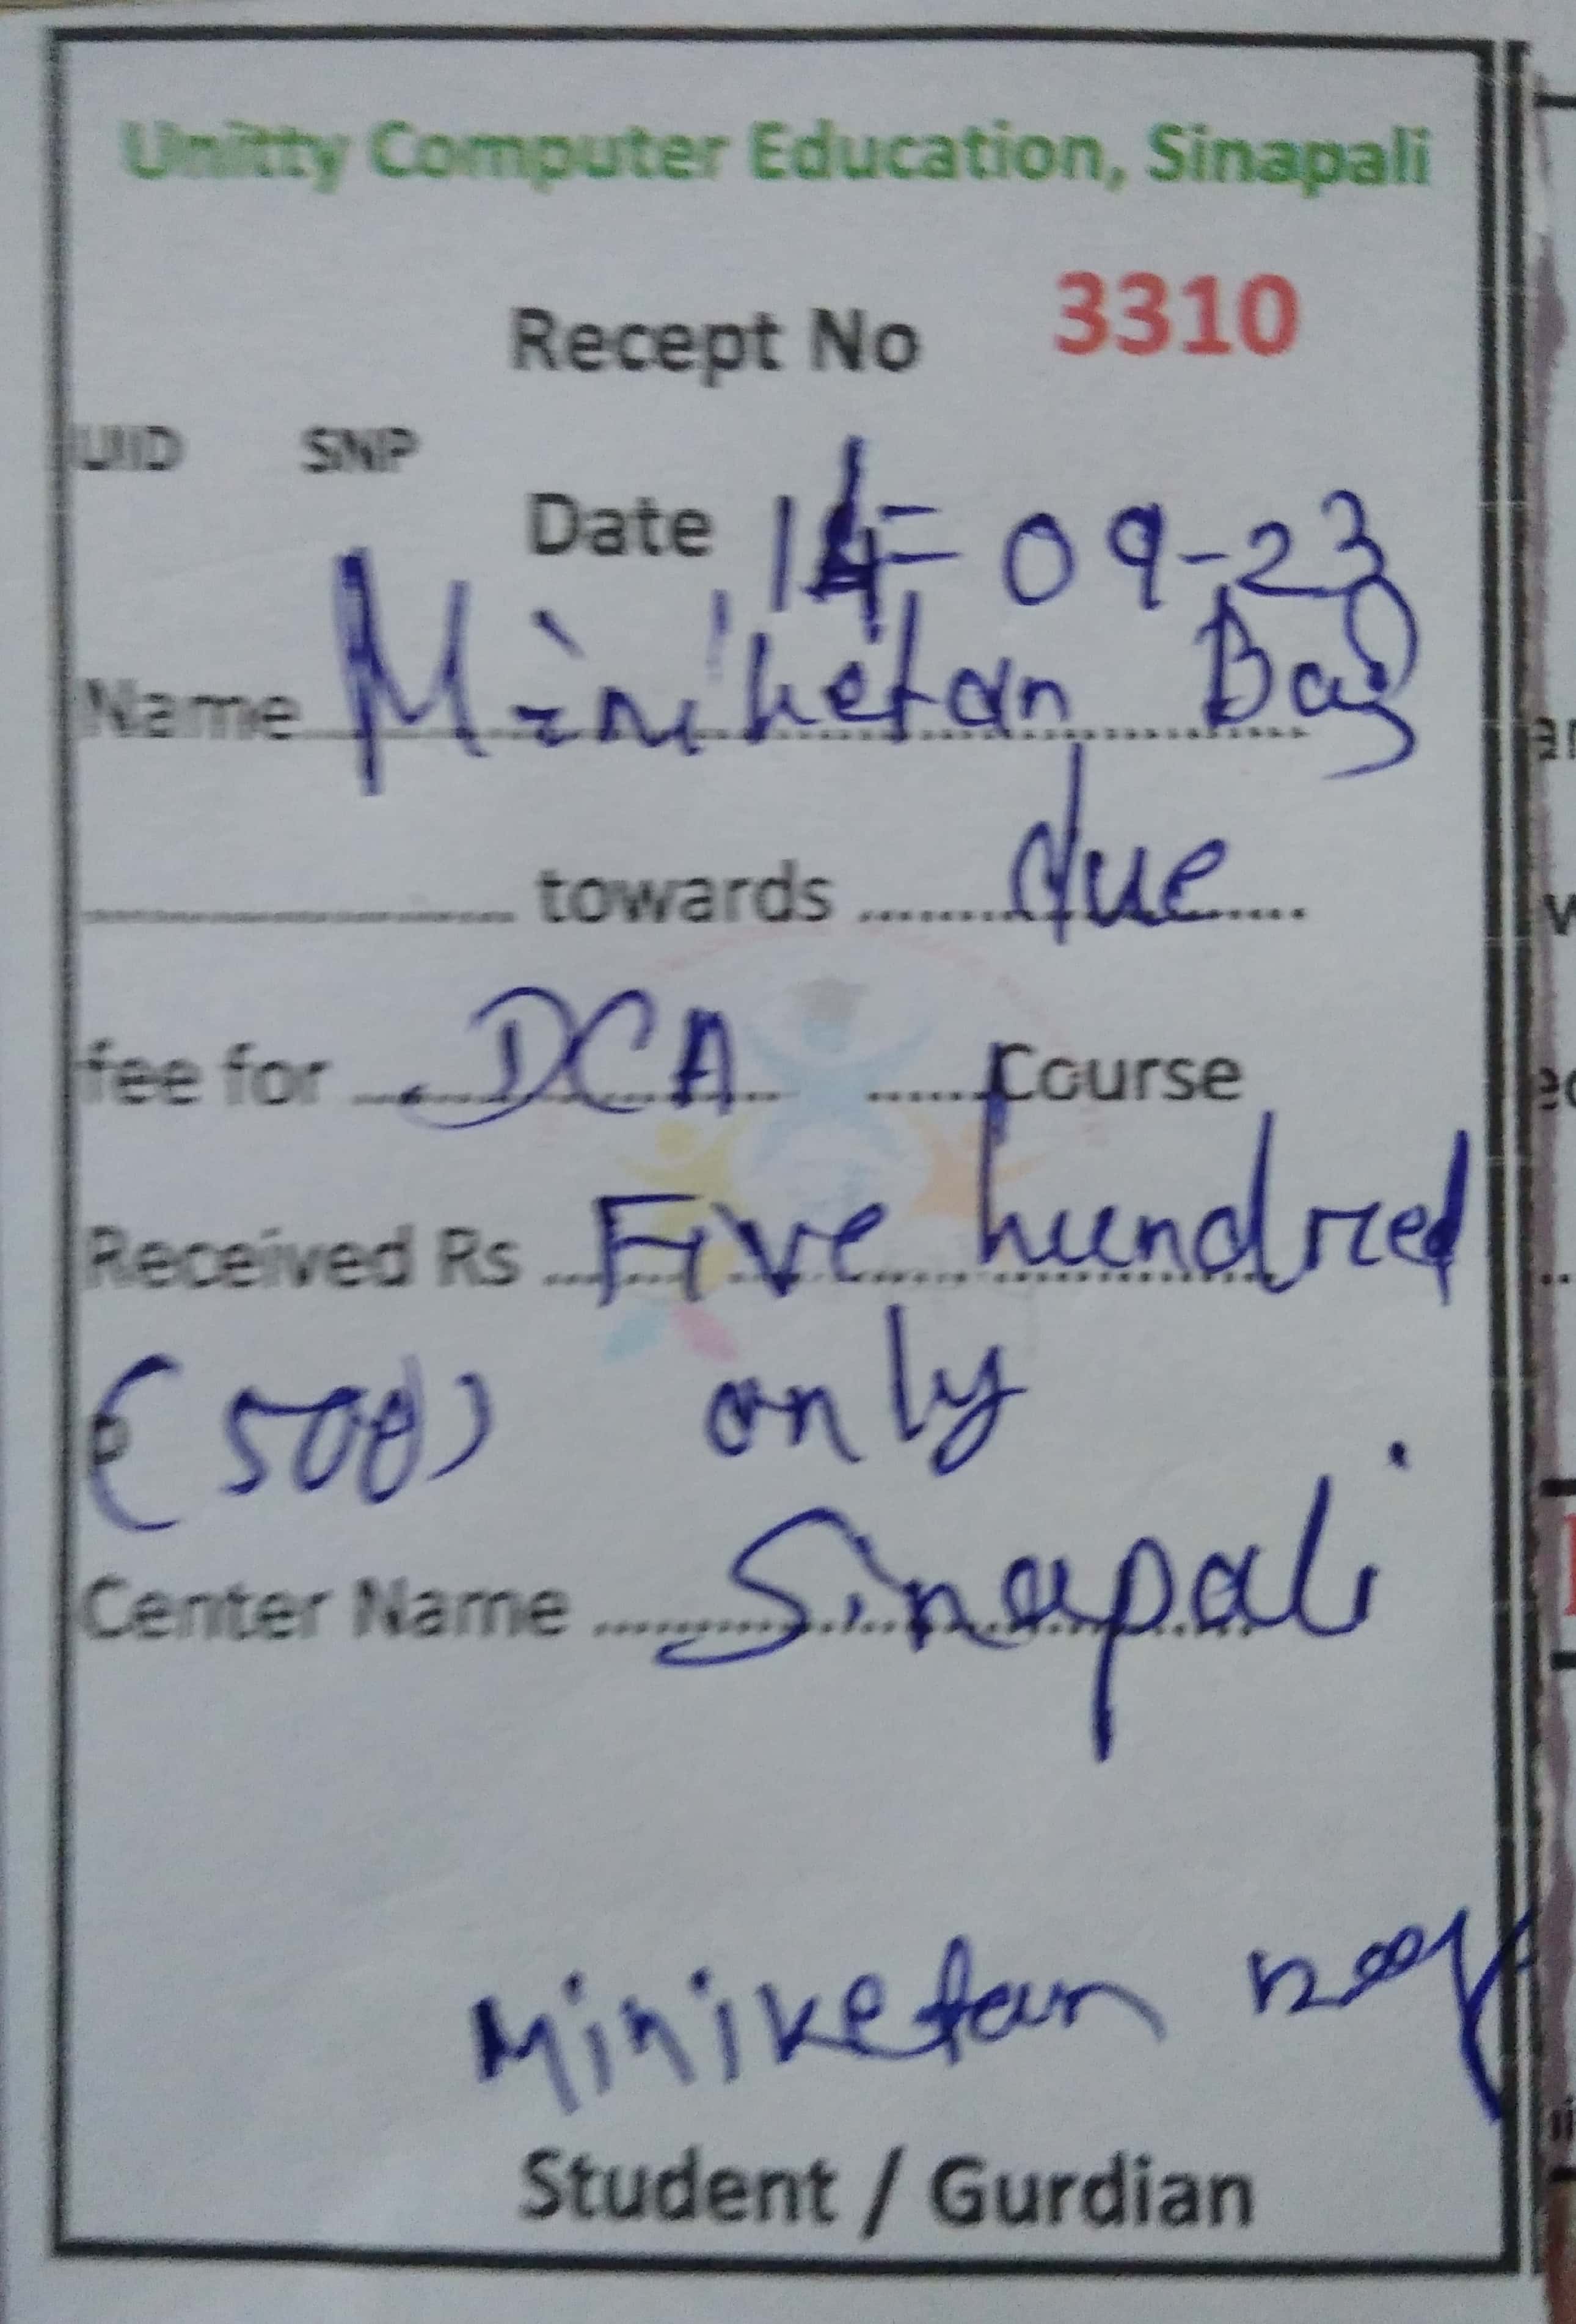 Unitty Computer Education, Sinapali
Recept No 3310
UID SNP
Date 14-09-23
Name Miniketan Bag
towards due
fee for DCA Course
Received Rs Five hundred
(500) only
Center Name Sinapali
Miniketan
Student / Gurdian